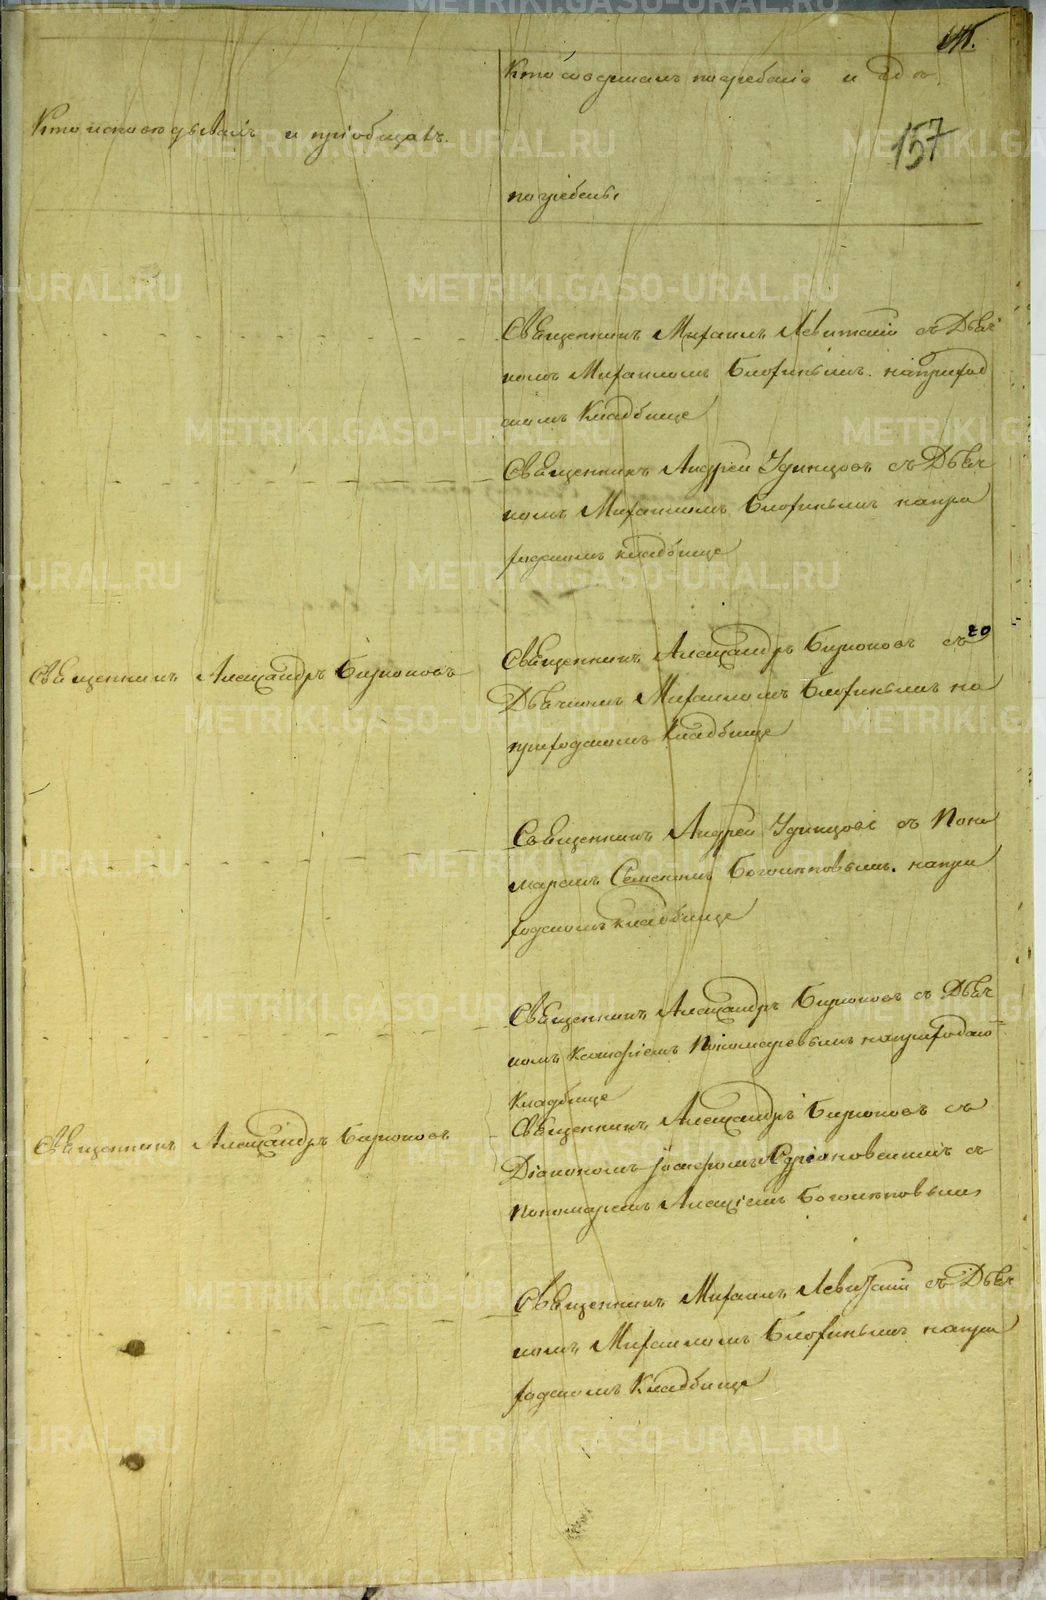 157
Кто совершалъ погребенiе и гдѣ
Кто исповѣдывалъ и прiобщалъ.
погребены
Священникъ Михаилъ Левитскiй съ Дьяч
комъ Михаиломъ Блохинымъ. на приход
скомъ Кладбище
Священникъ Андрей Удинцовъ съ Дьяч
комъ Михаиломъ Блохинымъ на при
ходскомъ кладбище
Священникъ Александръ Бирюковъ
Священникъ Александръ Бирюковъ съ
Дьячкомъ Михаиломъ Блохинымъ на
приходскомъ Кладбище
Священникъ Андрей Удинцовъ съ Поно
маремъ Семеномъ Богомоловымъ. на при
ходскомъ кладбище
Священникъ Александръ Бирюковъ съ Дьяч
комъ Пономаревымъ на приходско
Кладбище
Священникъ Александръ Бирюковъ
Священникъ Александръ Бирюковъ съ
Дiакономъ съ
Пономаремъ Алексiемъ
Священникъ Михаилъ Левитскiй съ Дьяч
комъ Михаиломъ Блохинымъ на при
ходскомъ Кладбище
METRIKI.GASO-URAL.RU